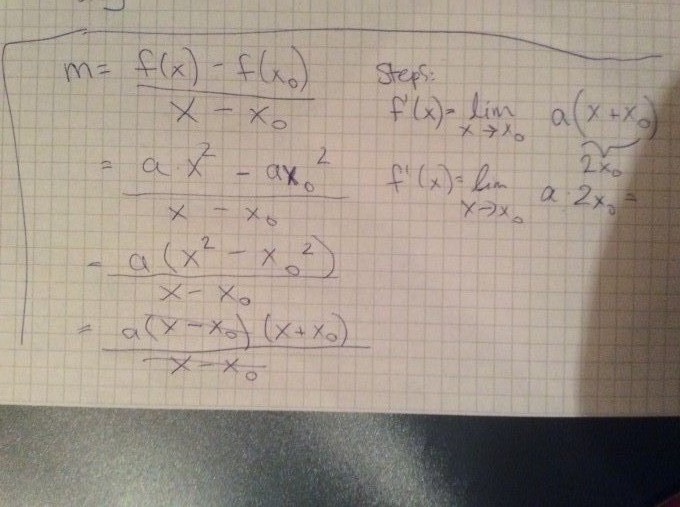 m = f(x) - f(x₀) / x - x₀
= a x² - ax₀² / x - x₀
= a(x² - x₀²) / x - x₀
= a(x - x₀)(x + x₀) / x - x₀
Steps:
f'(x) = lim x→x₀ a(x + x₀)
2x₀
f'(x) = lim x→x₀ a 2x₀ =